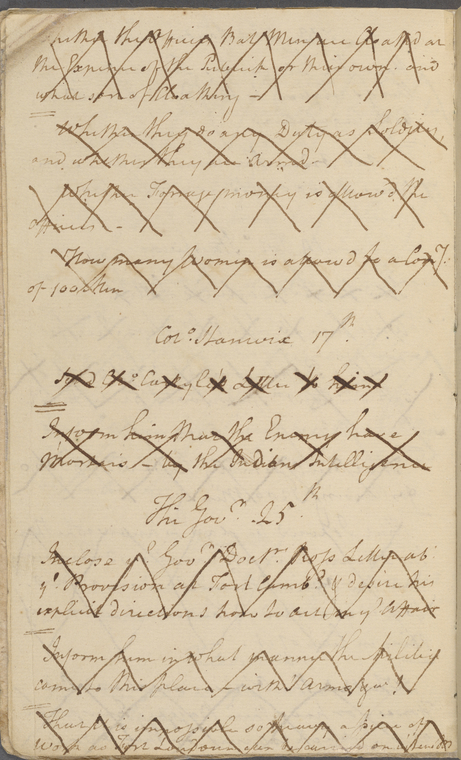 whether the Officers Bat Men are Cloath'd at
the Expence of the Publick or their own. and
what sort of Cloathing —
Whether they do any Duty as Soldiers,
and whether they are Arm'd —
Whether Forrage money is allow'd the
Officers —
How many Women is allow'd to a Comy.
of 100 Men
Colo. Stanwix 17th.
Send Colo. letter to him
Inform him that the Enemy have
Morters — by the Indians Intelligence
The Govr. 25th
Inclose ye. Govr. Doctr. Ross Letter abt.
ye. Provision at Fort Cumbd. & desire his
explicit directions how to act in ye. Affair
Inform him in what manner the Militia
came to this place — with Arms &ca.!
That it is impossible so
Work as Fort Loudoun can be carried on